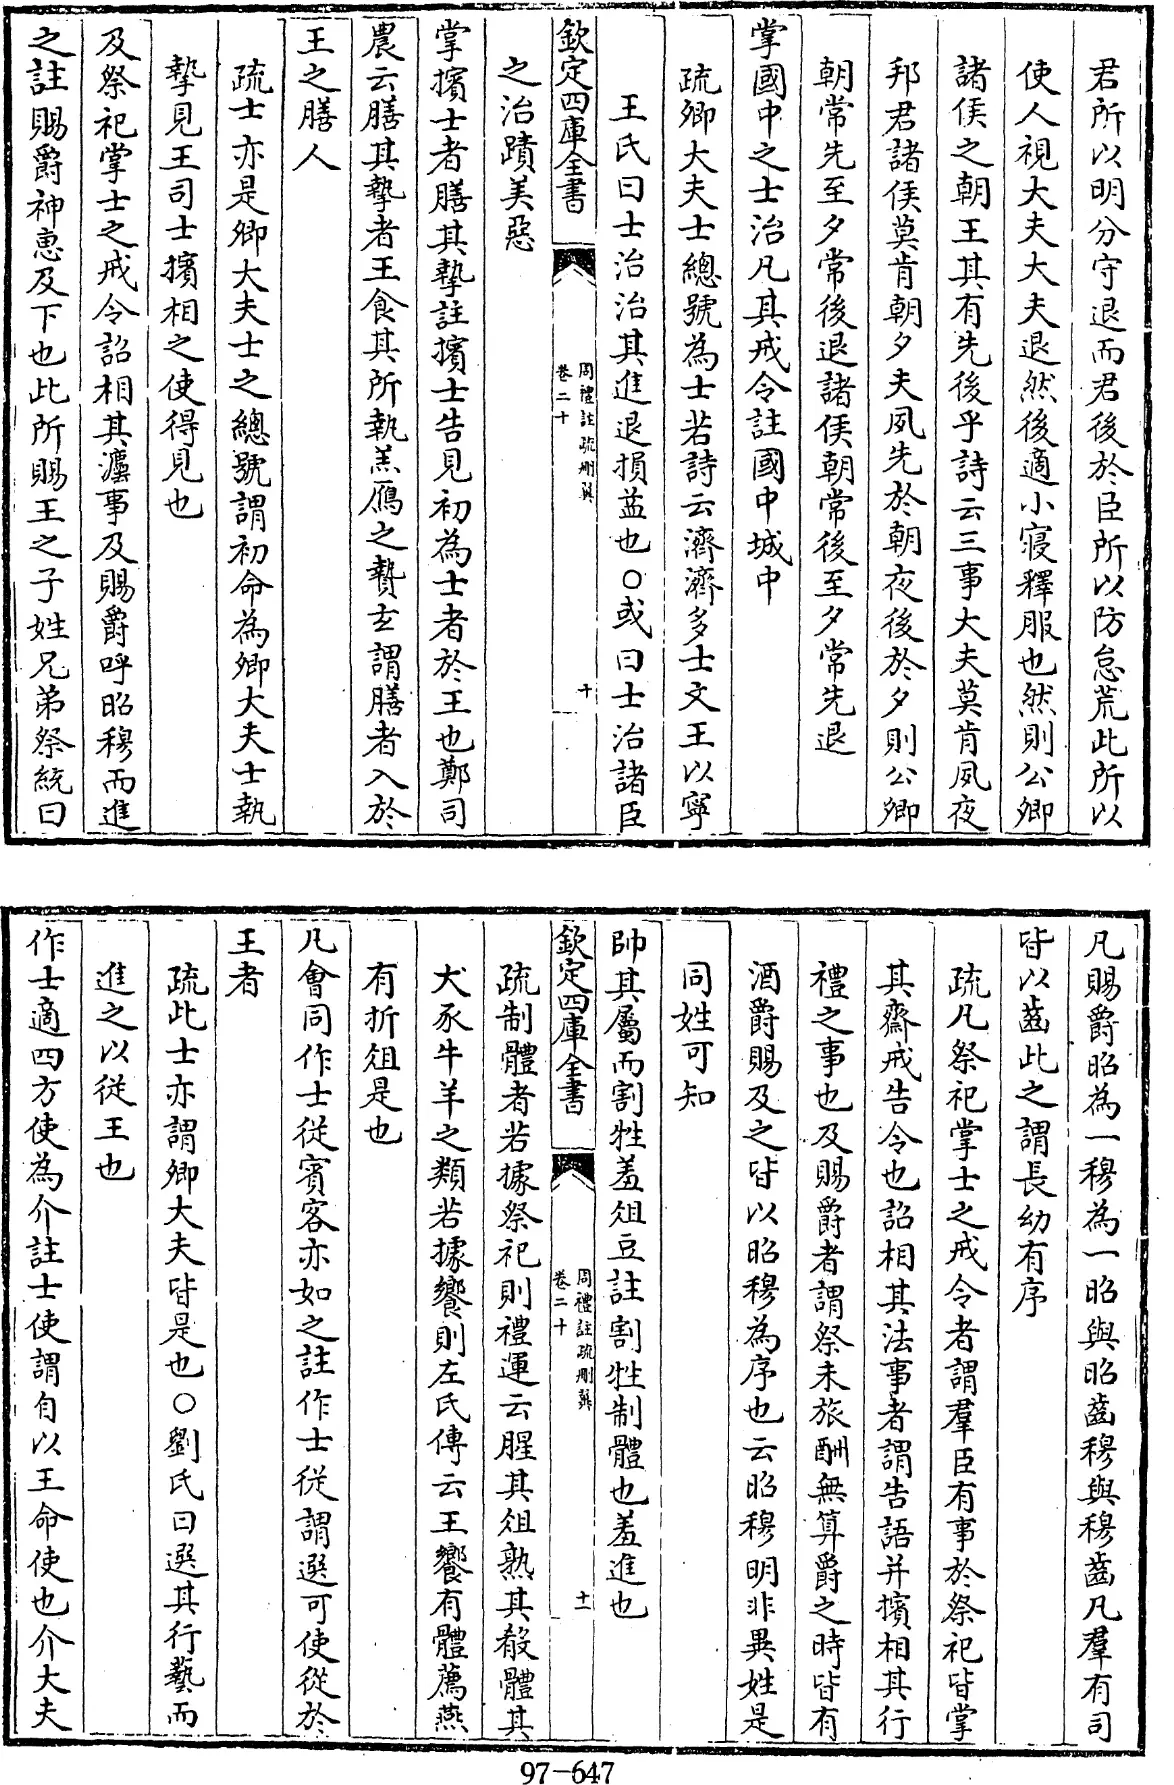 君所以明分守退而君後於臣所以防怠荒此所以
使人視大夫大夫退然後適小寢釋服也然則公卿
諸侯之朝王其有先後乎詩云三事大夫莫肯夙夜
邦君諸侯莫肯朝夕夫夙先於朝夜後於夕則公卿
朝常先至夕常後退諸侯朝常後至夕常先退
掌國中之士治凡其戒令註國中城中
疏卿大夫士總號為士若詩云濟濟多士文王以寧
王氏曰士治治其進退損益也○或曰士治諸臣
欽定四庫全書
周禮註疏刪翼
卷二十
十
之治蹟美惡
掌擯士者膳其摯註擯士告見初為士者於王也鄭司
農云膳其摯者王食其所執羔鴈之贄玄謂膳者入於
王之膳人
疏士亦是卿大夫士之總號謂初命為卿大夫士執
摯見王司士擯相之使得見也
及祭祀掌士之戒令詔相其灋事及賜爵呼昭穆而進
之註賜爵神惠及下也此所賜王之子姓兄弟祭統曰
凡賜爵昭為一穆為一昭與昭齒穆與穆齒凡羣有司
皆以齒此之謂長幼有序
疏凡祭祀掌士之戒令者謂羣臣有事於祭祀皆掌
其齋戒告令也詔相其法事者謂告語并擯相其行
禮之事也及賜爵者謂祭未旅酬無算爵之時皆有
酒爵賜及之皆以昭穆為序也云昭穆明非異姓是
同姓可知
帥其屬而割牲羞俎豆註割牲制體也羞進也
欽定四庫全書
周禮註疏刪翼
卷二十
十一
疏制體者若據祭祀則禮運云腥其俎熟其殽體其
犬豕牛羊之類若據饗則左氏傳云王饗有體薦燕
有折俎是也
凡會同作士從賓客亦如之註作士從謂選可使從於
王者
疏此士亦謂卿大夫皆是也○劉氏曰選其行藝而
進之以從王也
作士適四方使為介註士使謂自以王命使也介大夫
97-647